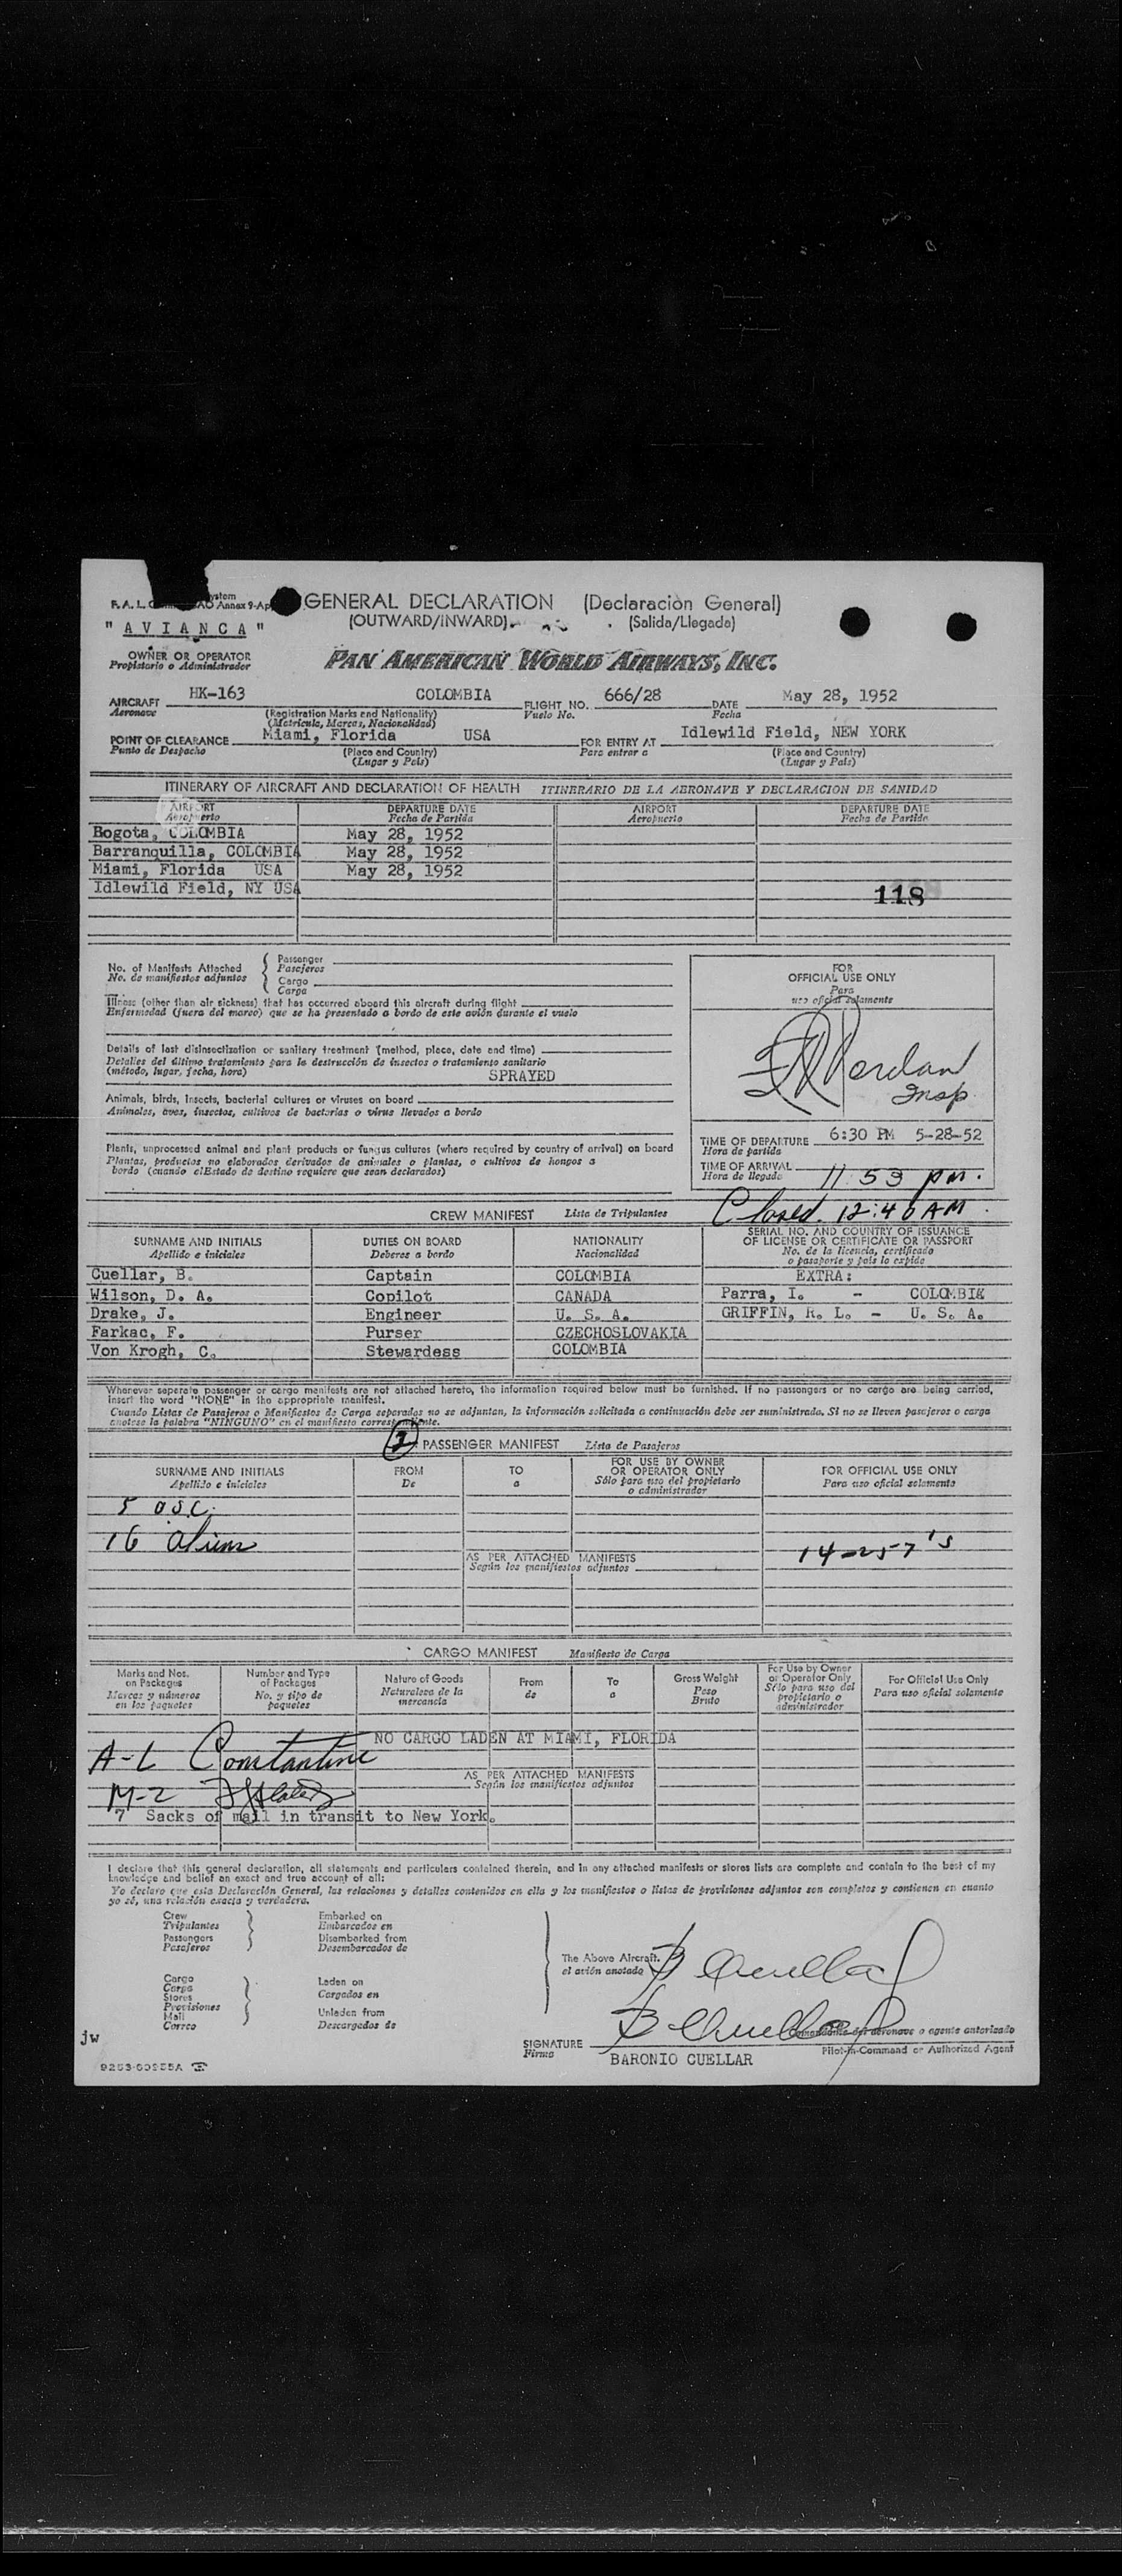 GENERAL DECLARATION (Declaración General)
(OUTWARD/INWARD) (Salida/Llegada)
" AVIANCA "
OWNER OR OPERATOR
Propietario o Administrador
PAN AMERICAN WORLD AIRWAYS, INC.
AIRCRAFT HK-163 COLOMBIA FLIGHT NO. 666/28 DATE May 28, 1952
Aeronave (Registration Marks and Nationality) Vuelo No. Fecha
(Matrícula, Marcas, Nacionalidad)
POINT OF CLEARANCE Miami, Florida USA FOR ENTRY AT Idlewild Field, NEW YORK
Punto de Despacho (Place and Country) Para entrar a (Place and Country)
(Lugar y País) (Lugar y País)
ITINERARY OF AIRCRAFT AND DECLARATION OF HEALTH ITINERARIO DE LA AERONAVE Y DECLARACION DE SANIDAD
AIRPORT DEPARTURE DATE AIRPORT DEPARTURE DATE
Aeropuerto Fecha de Partida Aeropuerto Fecha de Partida
Bogota, COLOMBIA May 28, 1952
Barranquilla, COLOMBIA May 28, 1952
Miami, Florida USA May 28, 1952
Idlewild Field, NY USA
118
No. of Manifests Attached
No. de manifiestos adjuntos
Passenger
Pasajeros
Cargo
Carga
FOR
OFFICIAL USE ONLY
Para
uso oficial solamente
Illness (other than air sickness) that has occurred aboard this aircraft during flight
Enfermedad (fuera del mareo) que se ha presentado a bordo de este avión durante el vuelo
Details of last disinsectization or sanitary treatment (method, place, date and time)
Detalles del último tratamiento para la destrucción de insectos o tratamiento sanitario
(método, lugar, fecha, hora) SPRAYED
Insp.
Animals, birds, insects, bacterial cultures or viruses on board
Animales, aves, insectos, cultivos de bacterias o virus llevados a bordo
Plants, unprocessed animal and plant products or fungus cultures (where required by country of arrival) on board
Plantas, productos no elaborados derivados de animales o plantas, o cultivos de hongos a
bordo (cuando el Estado de destino requiere que sean declarados)
TIME OF DEPARTURE 6:30 PM 5-28-52
Hora de partida
TIME OF ARRIVAL 11 53 pm.
Hora de llegada
Closed. 12:40 AM.
CREW MANIFEST Lista de Tripulantes
SURNAME AND INITIALS DUTIES ON BOARD NATIONALITY SERIAL NO. AND COUNTRY OF ISSUANCE
Apellido e iniciales Deberes a bordo Nacionalidad OF LICENSE OR CERTIFICATE OR PASSPORT
No. de la licencia, certificado
o pasaporte y país lo expide
Cuellar, B. Captain COLOMBIA EXTRA:
Wilson, D. A. Copilot CANADA Parra, I. - COLOMBIA
Drake, J. Engineer U. S. A. GRIFFIN, R. L. - U. S. A.
Farkac, F. Purser CZECHOSLOVAKIA
Von Krogh, C. Stewardess COLOMBIA
Whenever seperate passenger or cargo manifests are not attached hereto, the information required below must be furnished. If no passengers or no cargo are being carried,
insert the word "NONE" in the appropriate manifest.
Cuando Listas de Pasajeros o Manifiestos de Carga separados no se adjuntan, la información solicitada a continuación debe ser suministrada. Si no se lleven pasajeros o carga
anotese la palabra "NINGUNO" en el manifiesto correspondiente.
PASSENGER MANIFEST Lista de Pasajeros
SURNAME AND INITIALS FROM TO FOR USE BY OWNER FOR OFFICIAL USE ONLY
Apellido e iniciales De a OR OPERATOR ONLY Para uso oficial solamente
Sólo para uso del propietario
o administrador
5 USC.
16 Aliens
14-257's
AS PER ATTACHED MANIFESTS
Según los manifiestos adjuntos
CARGO MANIFEST Manifiesto de Carga
Marks and Nos. Number and Type Nature of Goods From To Gross Weight For Use by Owner For Official Use Only
on Packages of Packages Naturaleza de la de a Peso or Operator Only Para uso oficial solamente
Marcas y números No. y tipo de mercancía Bruto Sólo para uso del
en los paquetes paquetes propietario o
administrador
NO CARGO LADEN AT MIAMI, FLORIDA
A-L Constantine
AS PER ATTACHED MANIFESTS
Según los manifiestos adjuntos
M-2
7 Sacks of mail in transit to New York.
I declare that this general declaration, all statements and particulars contained therein, and in any attached manifests or stores lists are complete and contain to the best of my
knowledge and belief an exact and true account of all:
Yo declaro que esta Declaración General, las relaciones y detalles contenidos en ella y los manifiestos o listas de provisiones adjuntos son completos y contienen en cuanto
yo sé, una relación exacta y verdadera.
Crew Embarked on
Tripulantes Embarcados en
Passengers Disembarked from
Pasajeros Desembarcados de
The Above Aircraft.
el avión anotado
B Cuellar
Cargo Laden on
Carga Cargados en
Stores
Provisiones Unladen from
Mail Descargados de
Correo
B Cuellar
jw
Comandante del aeronave o agente autorizado
SIGNATURE Pilot-in-Command or Authorized Agent
Firma BARONIO CUELLAR